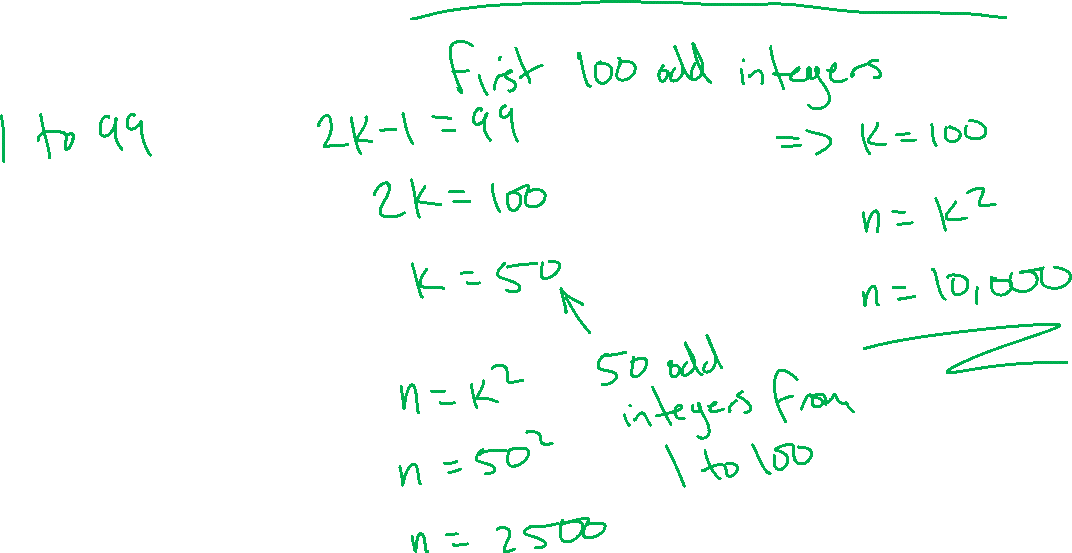 First 100 odd integers
1 to 99
2k-1=99
2k=100
k=50
50 odd
integers from
1 to 100
n=k²
n=50²
n=2500
=> k=100
n=k²
n=10,000